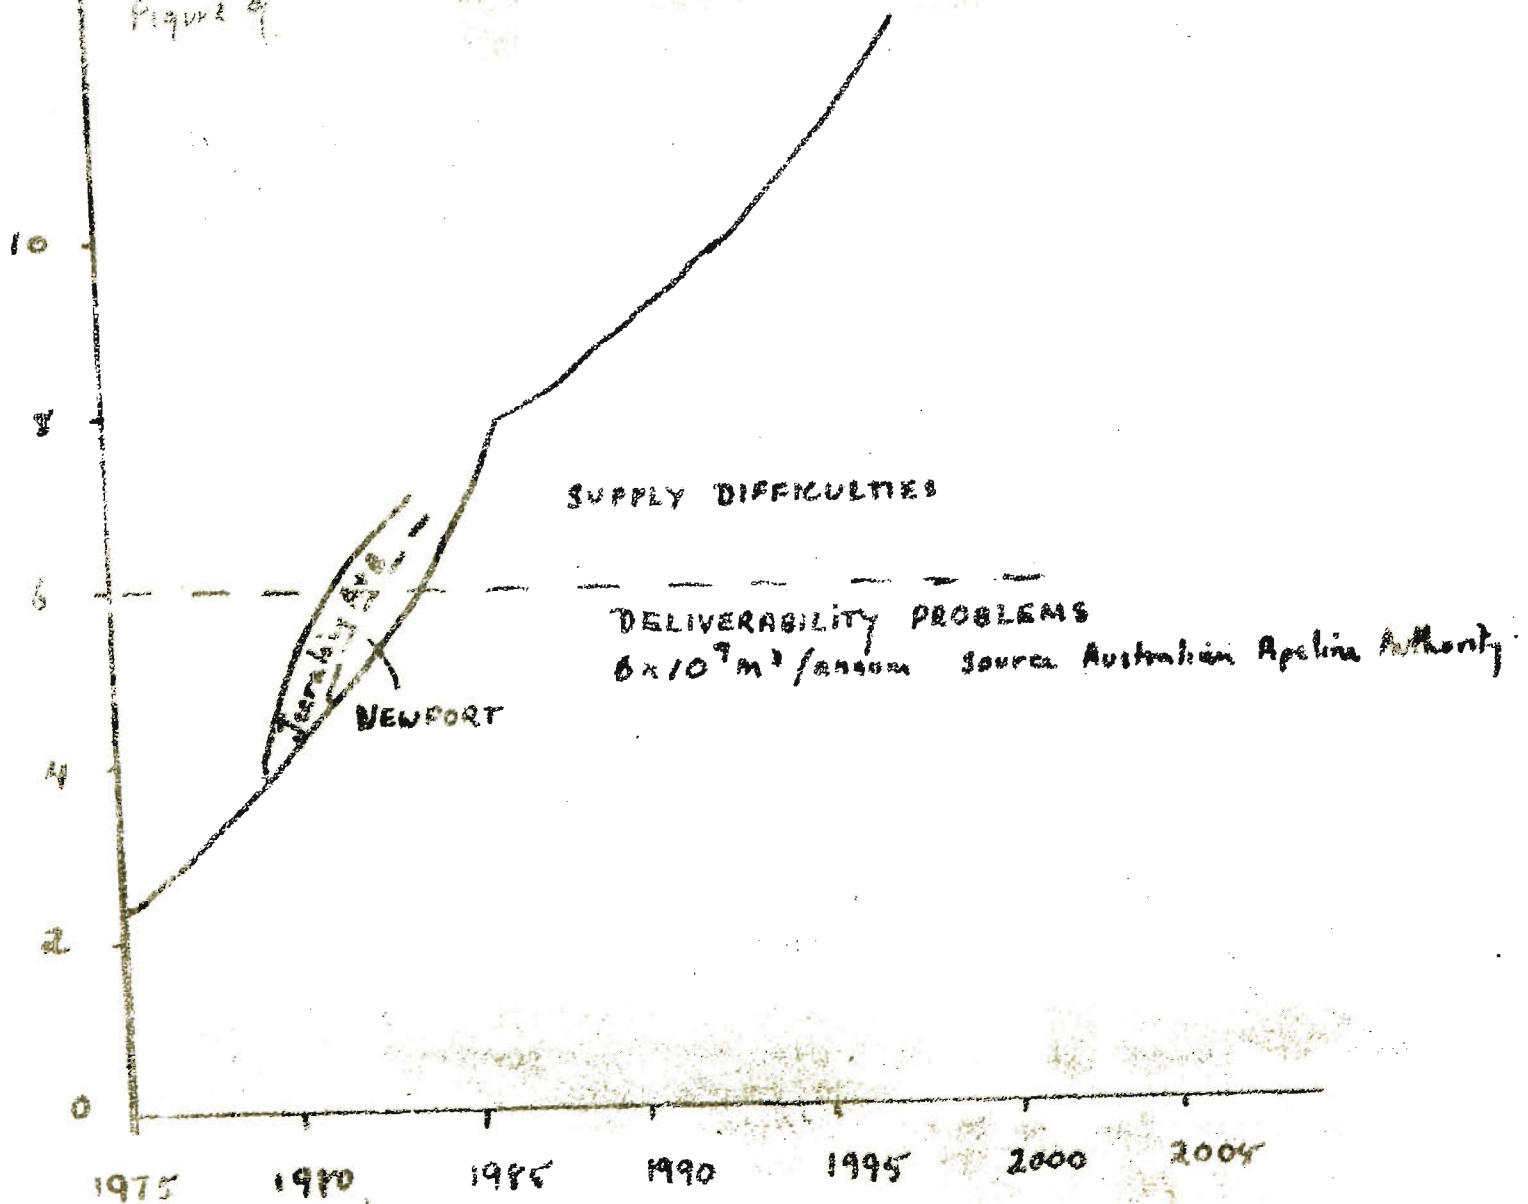 Figure 9
10
8
6
4
2
0
SUPPLY DIFFICULTIES
DELIVERABILITY PROBLEMS
6 x 10⁹ m³ /annum source Australian Pipeline Authority
NEWPORT
1975 1980 1985 1990 1995 2000 2005